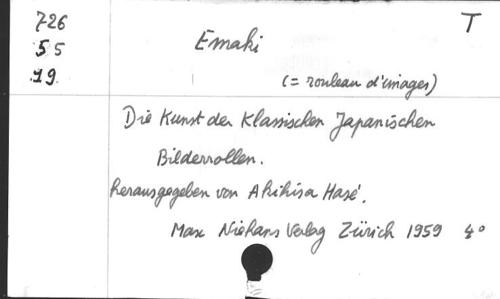 726
55
19
T
Emaki
(= rouleau d'images)
Die Kunst der Klassischen Japanischen
Bilderrollen.
herausgegeben von Akihisa Hasé.
Max Niehans Verlag Zürich 1959 4°